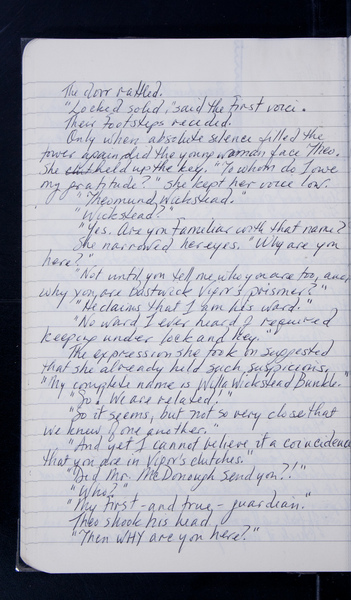 The door rattled.
"Locked solid," said the first voice.
Their footsteps receded.
Only when absolute silence filled the
tower again did the young woman face Theo.
She held up the key. "To whom do I owe
my gratitude?" She kept her voice low.
"Theomund Wickstead."
"Wickstead?"
"Yes. Are you familiar with that name?
She narrowed her eyes. "Why are you
here?"
"Not until you tell me who you are too, and
why you are Bostwick Vigor's prisoner?"
"He claims that I am his ward."
"No ward I ever heard of required
keeping under lock and key."
The expression she took on suggested
that she already held such suspicions.
"My complete name is Willa Wickstead Bunkle."
"So, we are related!"
"So it seems, but not so very close that
we knew of one another."
"And yet I cannot believe it a coincidence
that you are in Vigor's clutches."
"Did Mr. McDonough send you?!"
"Who?"
"My first - and true - guardian."
Theo shook his head.
"Then WHY are you here?"